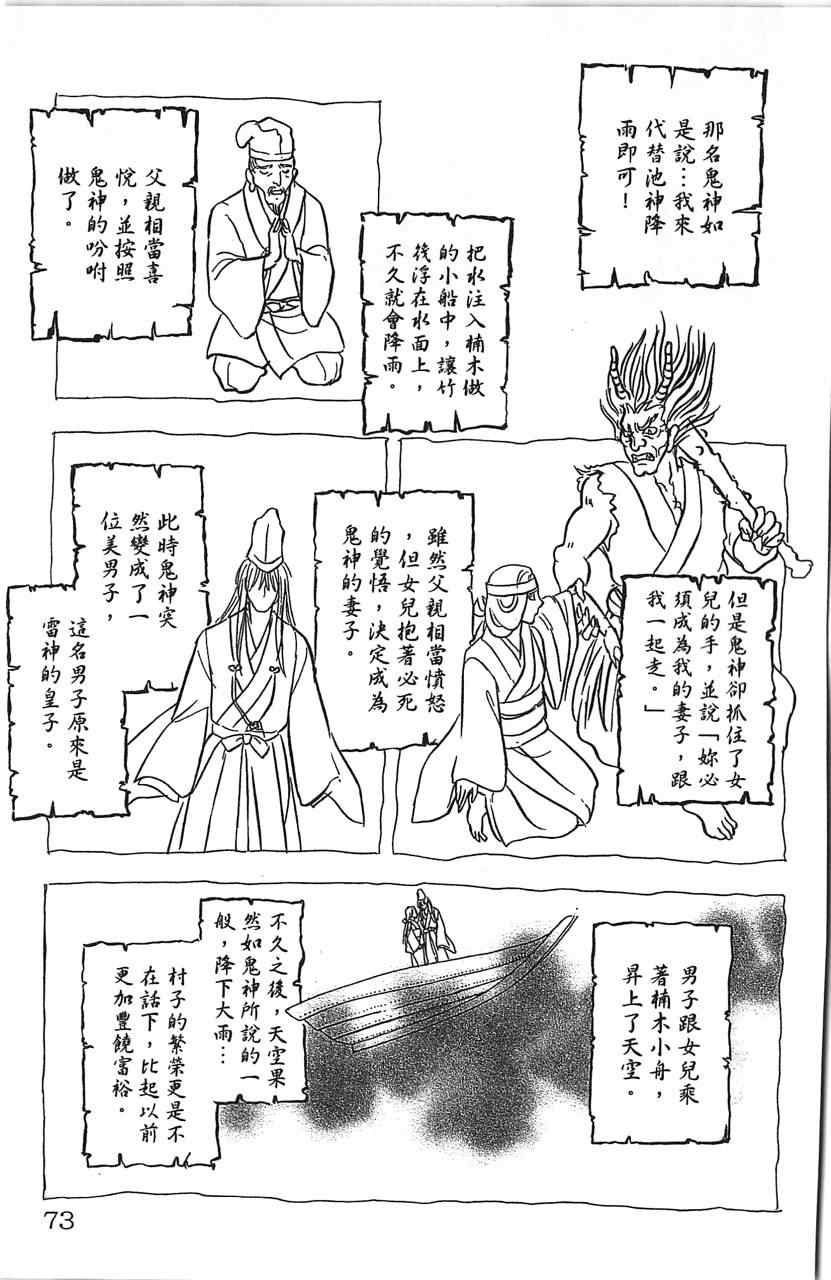 那名鬼神如
是說…我來
代替池神降
雨即可！
把水注入楠木做
的小船中，讓竹
後浮在水面上，
不久就會降雨。
父親相當喜
悅，並按照
鬼神的吩咐
做了。
但是鬼神卻抓住了女
兒的手，並說「妳必
須成為我的妻子，跟
我一起走。」
雖然父親相當憤怒
，但女兒抱著必死
的覺悟，決定成為
鬼神的妻子。
此時鬼神突
然變成了一
位美男子，
這名男子原來是
雷神的皇子。
男子跟女兒乘
著楠木小舟，
昇上了天空。
不久之後，天空果
然如鬼神所說的一
般，降下大雨…
村子的繁榮更是不
在話下，比起以前
更加豐饒富裕。
73